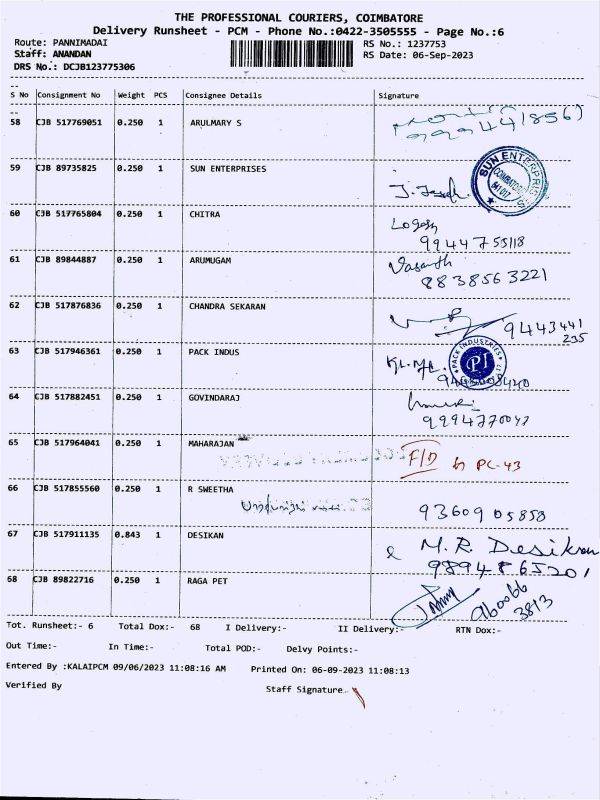 THE PROFESSIONAL COURIERS, COIMBATORE
Delivery Runsheet - PCM - Phone No.:0422-3505555 - Page No.:6
Route: PANNIMADAI RS No.: 1237753
Staff: ANANDAN RS Date: 06-Sep-2023
DRS No.: DCJB123775306
S No Consignment No Weight PCS Consignee Details Signature
58 CJB 517769051 0.250 1 ARULMARY S
59 CJB 89735825 0.250 1 SUN ENTERPRISES
SUN ENTERPRISES
COIMBATORE
641 017
60 CJB 517765804 0.250 1 CHITRA Logesh
9944755118
61 CJB 89844887 0.250 1 ARUMUGAM Vasanth
8838563221
62 CJB 517876836 0.250 1 CHANDRA SEKARAN
9443441
235
63 CJB 517946361 0.250 1 PACK INDUS
PACK INDUSTRIES
PI
64 CJB 517882451 0.250 1 GOVINDARAJ
9994770043
65 CJB 517964041 0.250 1 MAHARAJAN F/D PC-43
66 CJB 517855560 0.250 1 R SWEETHA
9360905858
67 CJB 517911135 0.843 1 DESIKAN M.R. Desikan
9894865201
68 CJB 89822716 0.250 1 RAGA PET
960066
3813
Tot. Runsheet:- 6 Total Dox:- 68 I Delivery:- II Delivery:- RTN Dox:-
Out Time:- In Time:- Total POD:- Delvy Points:-
Entered By :KALAIPCM 09/06/2023 11:08:16 AM Printed On: 06-09-2023 11:08:13
Verified By Staff Signature